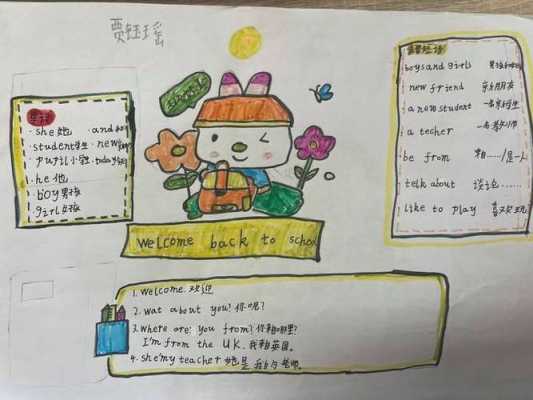 贾钰瑶
she 她 · and 和
student 学生 · new
pupil 小学生 · today 今天
he 他
boy 男孩
girl 女孩
重要短语
boys and girls
new friend 新朋友
a new student 一名新学生
a techer 一名老师
be from 来自……/是……人
telk about 谈论……
like to play 喜欢玩
welcome back to school
1. welcome. 欢迎
2. wat about you? 你呢?
3. where are you from? 你来自哪里?
I'm from the UK. 我来自英国。
4. she'my teacher 她是我的老师。